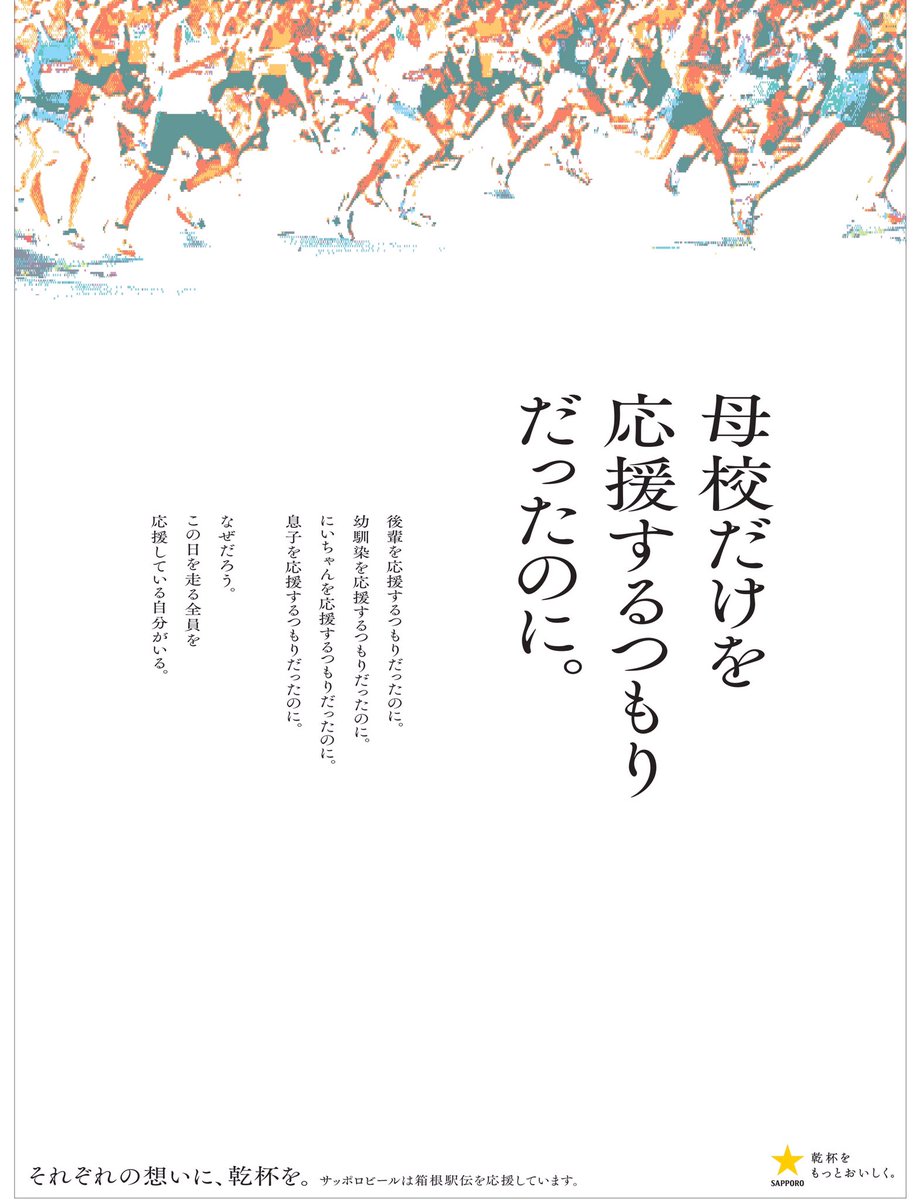 母校だけを
応援するつもり
だったのに。
後輩を応援するつもりだったのに。
幼馴染を応援するつもりだったのに。
にいちゃんを応援するつもりだったのに。
息子を応援するつもりだったのに。
なぜだろう。
この日を走る全員を
応援している自分がいる。
それぞれの想いに、乾杯を。
サッポロビールは箱根駅伝を応援しています。
SAPPORO
乾杯を
もっとおいしく。